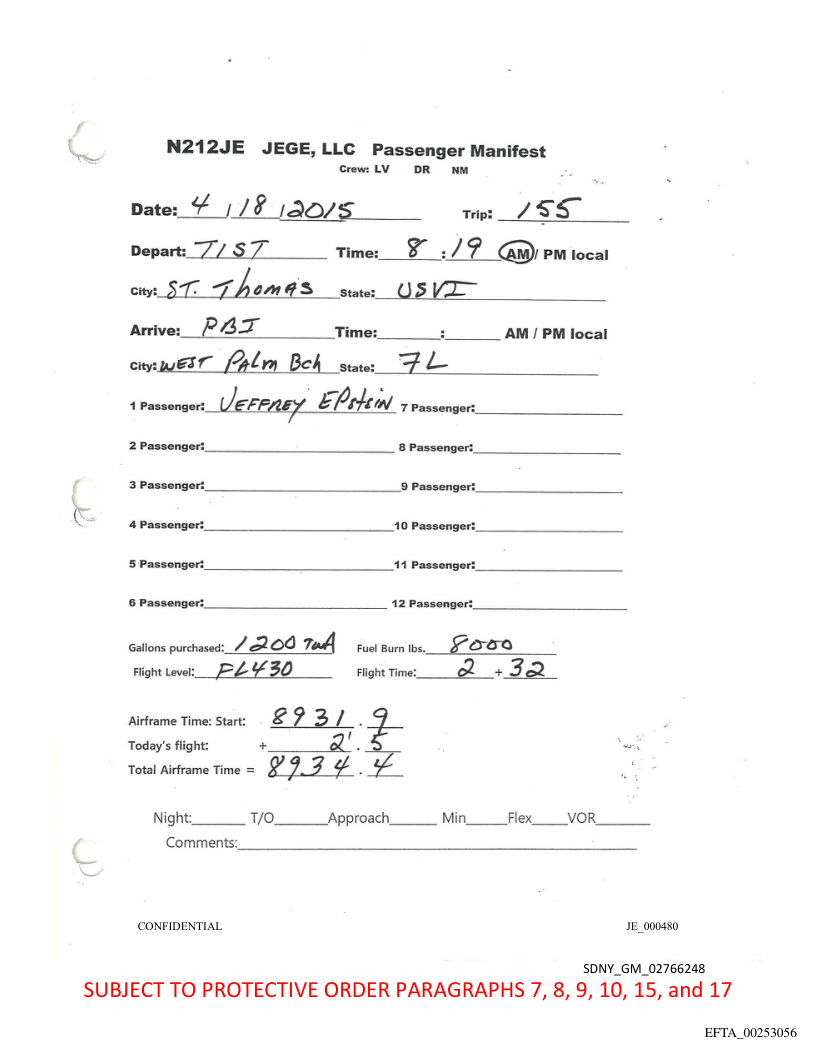 N212JE JEGE, LLC Passenger Manifest
Crew: LV DR NM
Date: 4 / 18 / 2015 Trip: 155
Depart: TIST Time: 8 : 19 AM / PM local
City: ST. Thomas State: USVI
Arrive: PBI Time: : AM / PM local
City: WEST PALm Bch State: 7L
1 Passenger: JEFFREY EPstein 7 Passenger:
2 Passenger: 8 Passenger:
3 Passenger: 9 Passenger:
4 Passenger: 10 Passenger:
5 Passenger: 11 Passenger:
6 Passenger: 12 Passenger:
Gallons purchased: 1200 Fuel Burn lbs. 8000
Flight Level: FL430 Flight Time: 2 + 32
Airframe Time: Start: 8931 . 9
Today's flight: + 2 . 5
Total Airframe Time = 8934 . 4
Night: T/O Approach Min Flex VOR
Comments:
CONFIDENTIAL JE_000480
SDNY_GM_02766248
SUBJECT TO PROTECTIVE ORDER PARAGRAPHS 7, 8, 9, 10, 15, and 17
EFTA_00253056